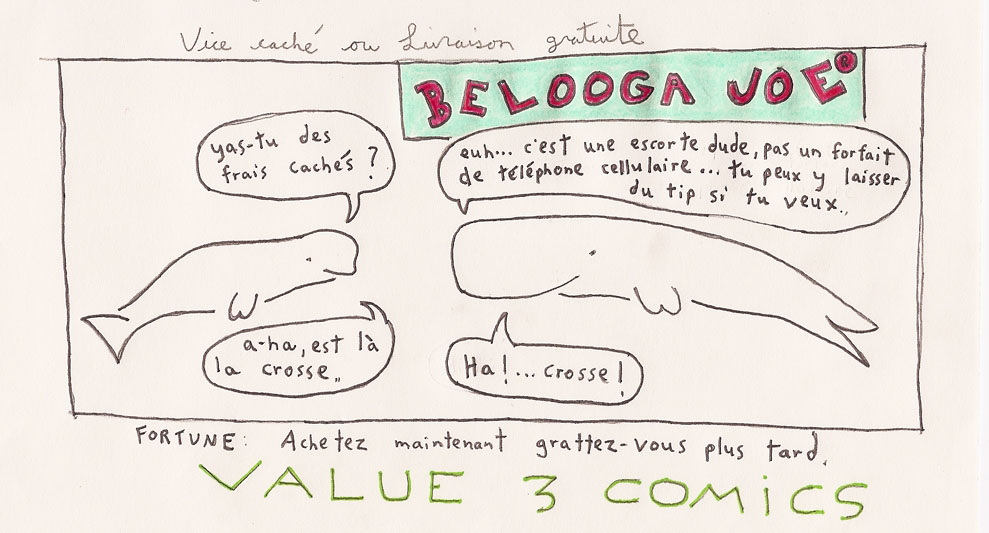 Vice caché ou Livraison gratuite
BELOOGA JOE®
yas-tu des
frais cachés ?
euh... c'est une escorte dude, pas un forfait
de téléphone cellulaire... tu peux y laisser
du tip si tu veux..
a-ha, est là
la crosse..
Ha!... crosse!
FORTUNE: Achetez maintenant grattez-vous plus tard.
VALUE 3 COMiCS